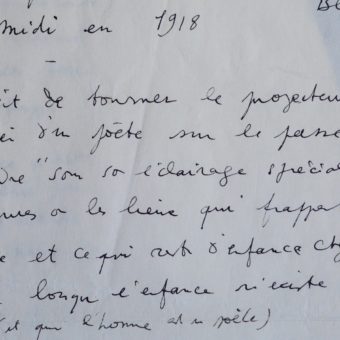 midi en 1918
–
it de tourner le projecteu
d'un poète sur le passé
"sous so éclairage spécial
ou les lieux qui frapp
e et ce qui reste d'enfance ch
lorsque l'enfance n'existe
(et que l'homme est un poète)